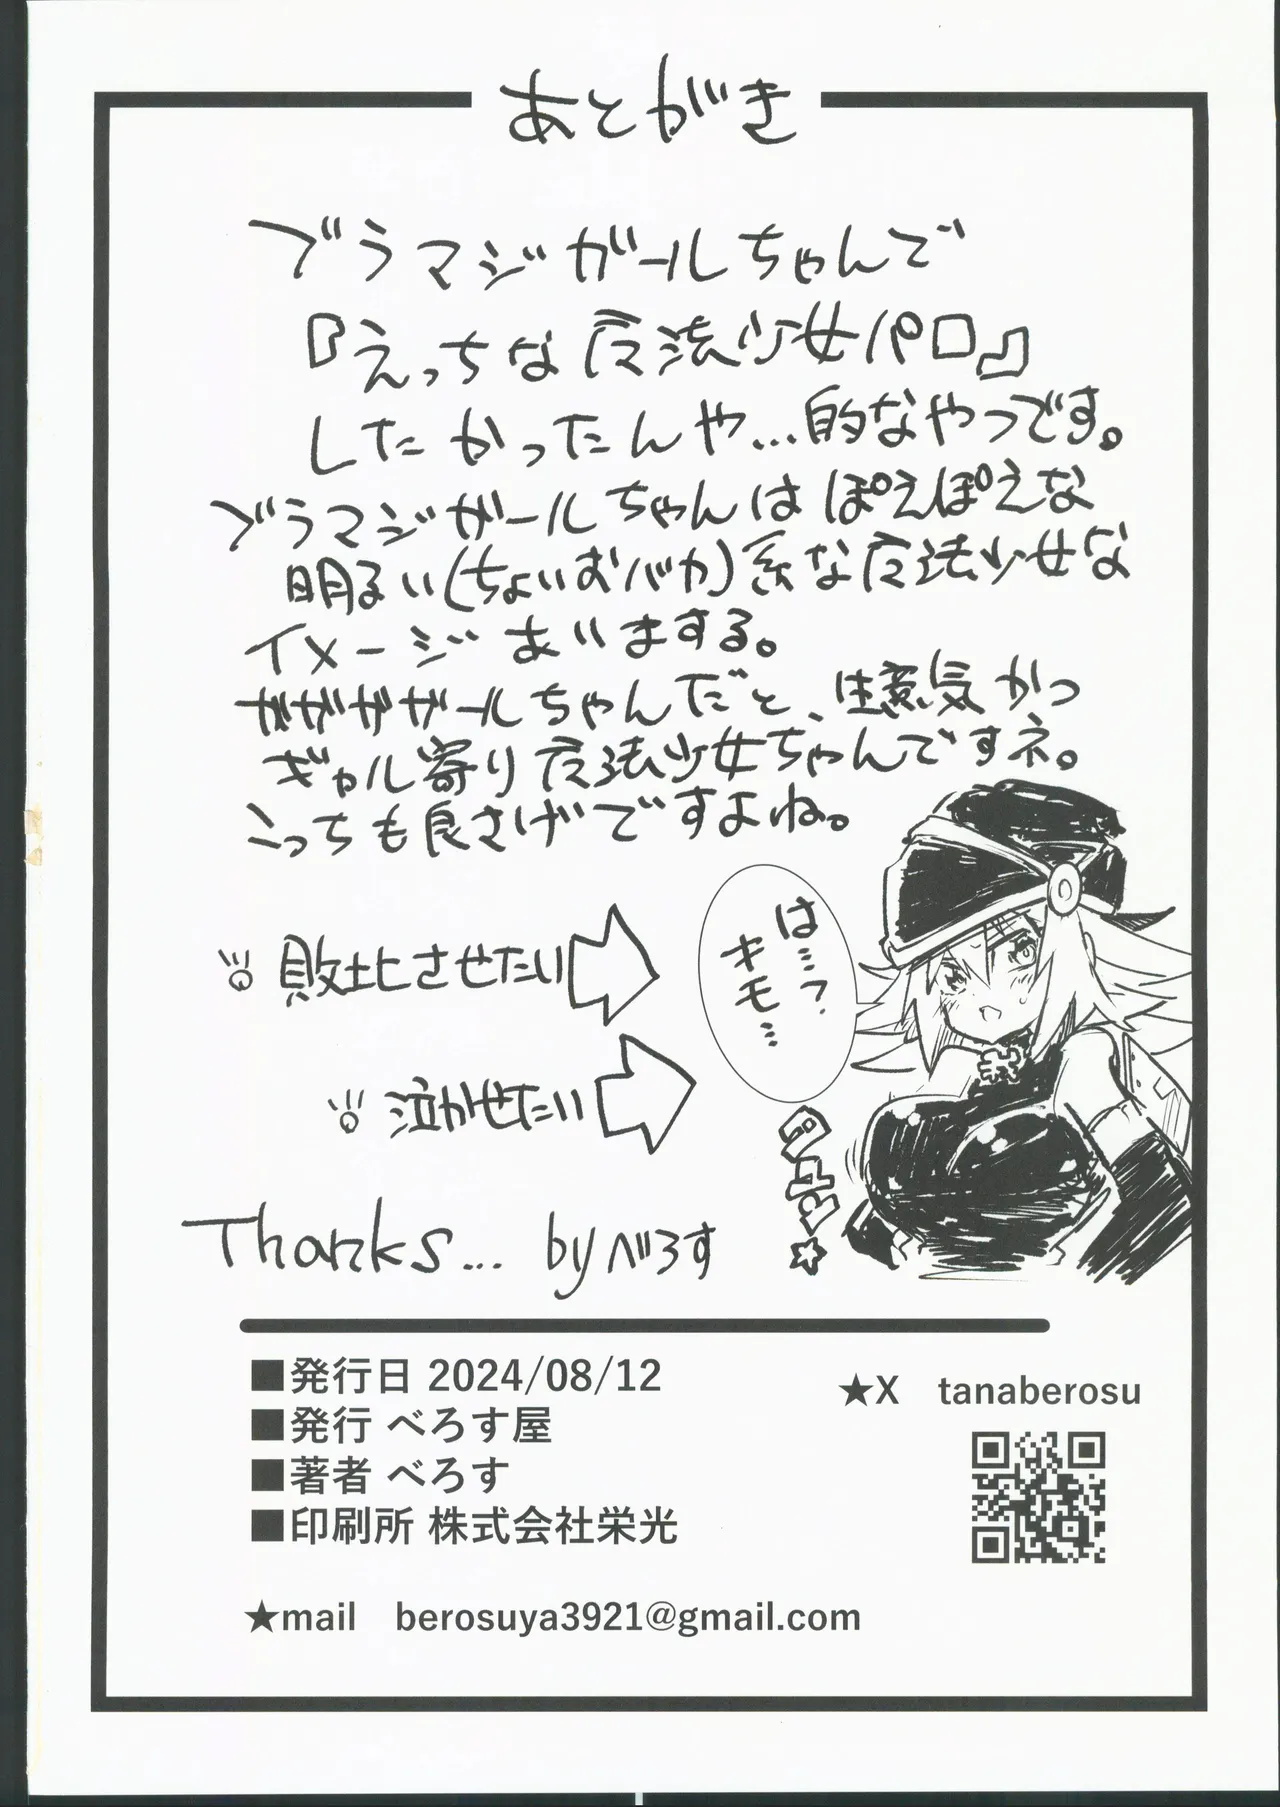 あとがき
ブラマジガールちゃんで
『えっちな魔法少女パロ』
したかったんや…的なやつです。
ブラマジガールちゃんは ぽえぽえな
明るい(ちょいおバカ)系な魔法少女な
イメージあいまする。
ガガガガールちゃんだと、生意気かつ
ギャル寄り魔法少女ちゃんですネ。
こっちも良さげですよね。
は…?
キモ…
敗北させたい
泣かせたい
Thanks... by べろす
■発行日 2024/08/12
■発行 べろす屋
■著者 べろす
■印刷所 株式会社栄光
★X tanaberosu
★mail berosuya3921@gmail.com